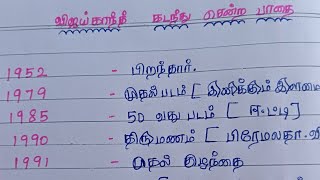 விஜய்காந்த் கடந்து சென்ற பாதை
1952 - பிறந்தார்.
1979 - முதல்படம் [ இனிக்கும் இளமை
1985 - 50 வது படம் [ ஈட்டி ]
1990 - திருமணம் [ பிரேமலதா. வி
1991 - முதல் குழந்தை